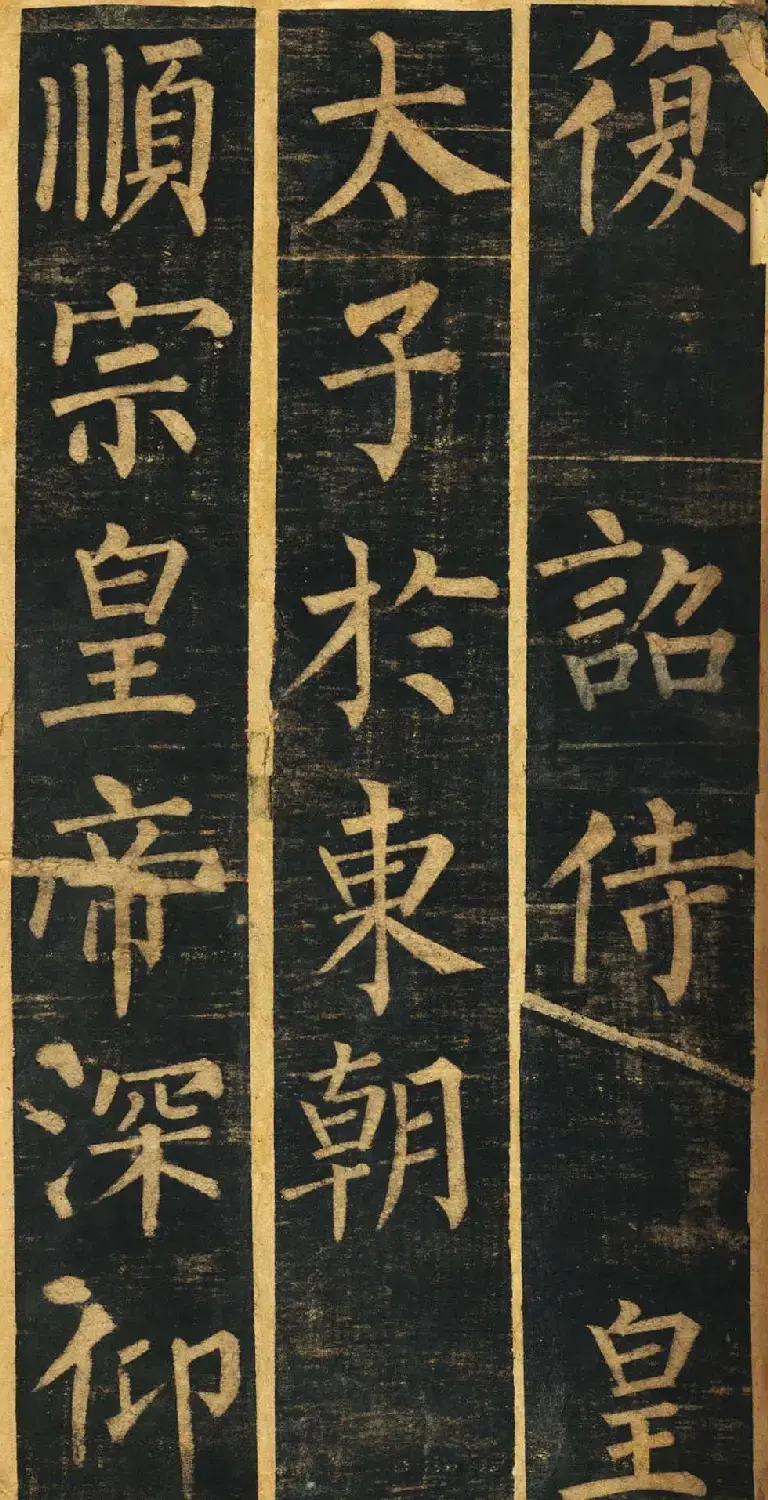 復詔侍皇
太子於東朝
順宗皇帝深仰